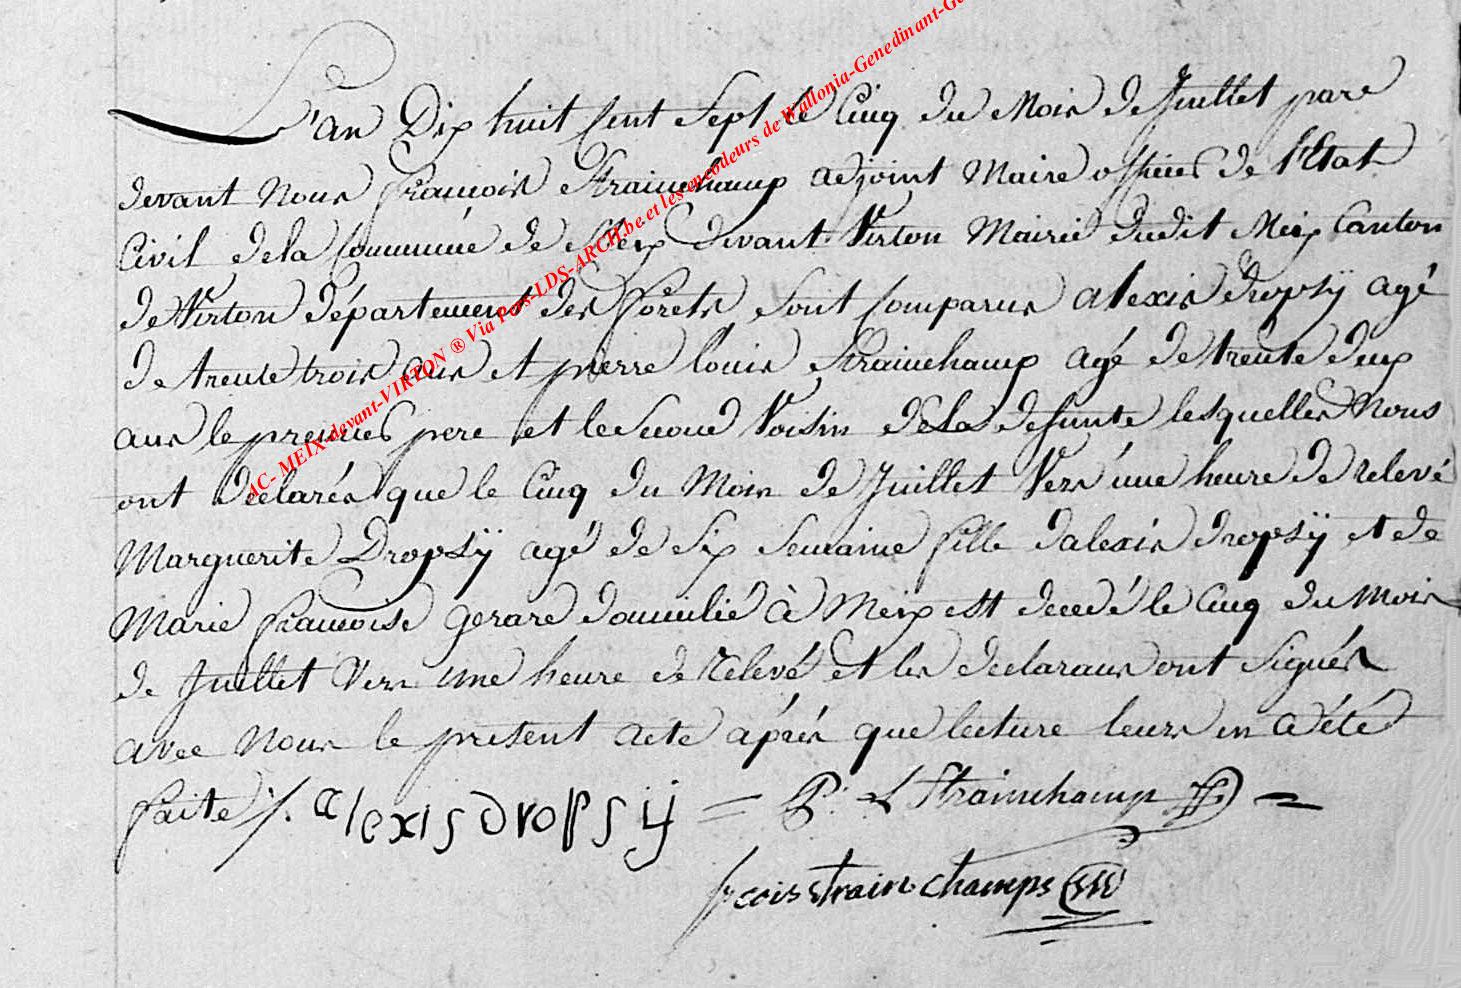 L'an Dix huit Cent Sept le Cinq du Mois de Juillet parc
devant Nous françois Strainchamp adjoint Maire officier de l'Etat
Civil de la Commune de Meix devant Virton Mairie dudit Meix Canton
de Virton Département des forets sont Comparus alexis dropsÿ agé
de trente trois ans et pierre louis Strainchamp agé de trente deux
ans le premier pere et le Second Voisin de la defunte lesquelles Nous
ont déclarés que le Cinq du Mois de Juillet Vers une heure de relevé
Marguerite DropsÿY agé de Six Semaine fille d'alexis dropsÿ et de
Marie françoise gerard domicilié à Meix est decedé le Cinq du Mois
de Juillet Vers une heure de relevé et les declarans ont Signés
avec Nous le present acte aprés que lecture leurs en a été
faite ./. alexis dropsij = P. L Strainchamp =
fçois strainchamps
AC- MEIX-devant-VIRTON ® Via Pors-LDS-ARCH.be et les encodeurs de Wallonia-Genedinant-Ge